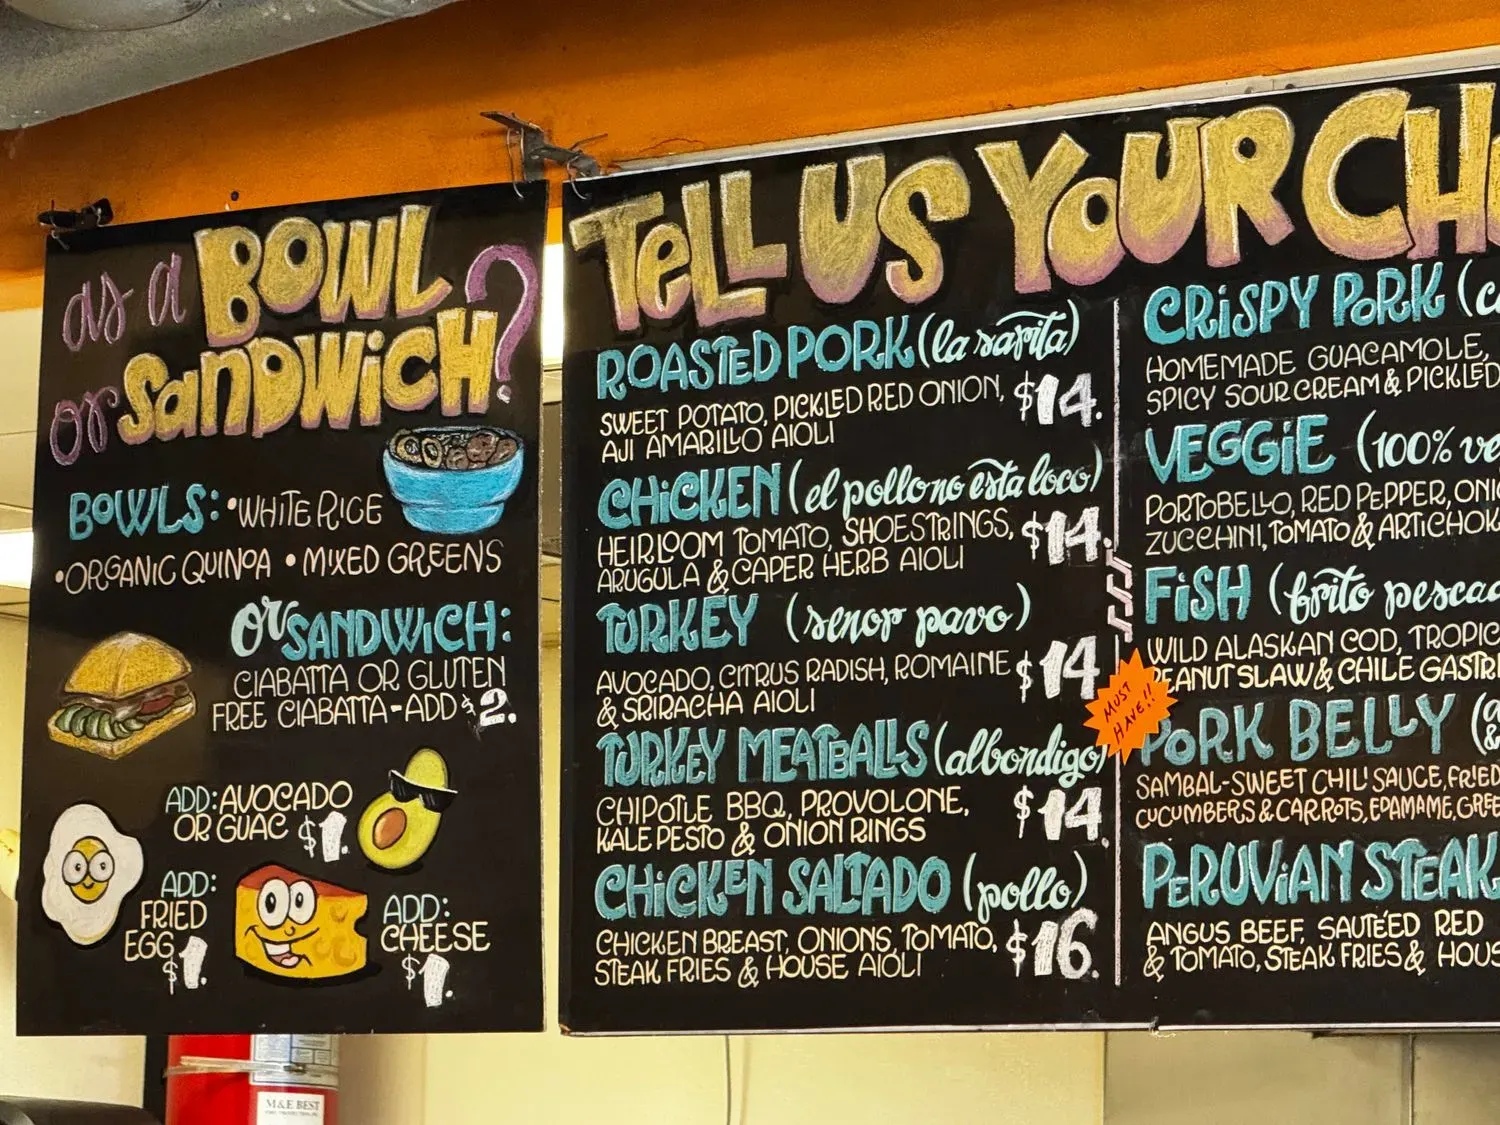 as a BOWL
or SANDWICH?
BOWLS: •WHITE RICE
•ORGANIC QUINOA • MIXED GREENS
Or SANDWICH:
CIABATTA OR GLUTEN
FREE CIABATTA-ADD $2.
ADD: AVOCADO
OR GUAC $1.
ADD:
FRIED
EGG $1.
ADD:
CHEESE
$1.
TELL US YOUR
ROASTED PORK (la sarita)
SWEET POTATO, PICKLED RED ONION, $14.
AJI AMARILLO AIOLI
CHICKEN (el pollo no esta loco)
HEIRLOOM TOMATO, SHOESTRINGS, $14.
ARUGULA & CAPER HERB AIOLI
TURKEY (senor pavo)
AVOCADO, CITRUS RADISH, ROMAINE $14
& SRIRACHA AIOLI
TURKEY MEATBALLS (albondigo)
CHIPOTLE BBQ, PROVOLONE, $14.
KALE PESTO & ONION RINGS
CHICKEN SALTADO (pollo)
CHICKEN BREAST, ONIONS, TOMATO, $16.
STEAK FRIES & HOUSE AIOLI
CRISPY PORK
HOMEMADE GUACAMOLE,
SPICY SOUR CREAM & PICKLED
VEGGIE (100%
PORTOBELLO, RED PEPPER,
ZUCCHINI, TOMATO &
FISH (frito
WILD ALASKAN COD,
PEANUT SLAW & CHILE
MUST
HAVE!!
PORK BELLY
SAMBAL-SWEET CHILI SAUCE, FRIED
CUCUMBERS & CARROTS, EDAMAME,
PERUVIAN STEAK
ANGUS BEEF, SAUTÉED RED
& TOMATO, STEAK FRIES &
M&E BEST